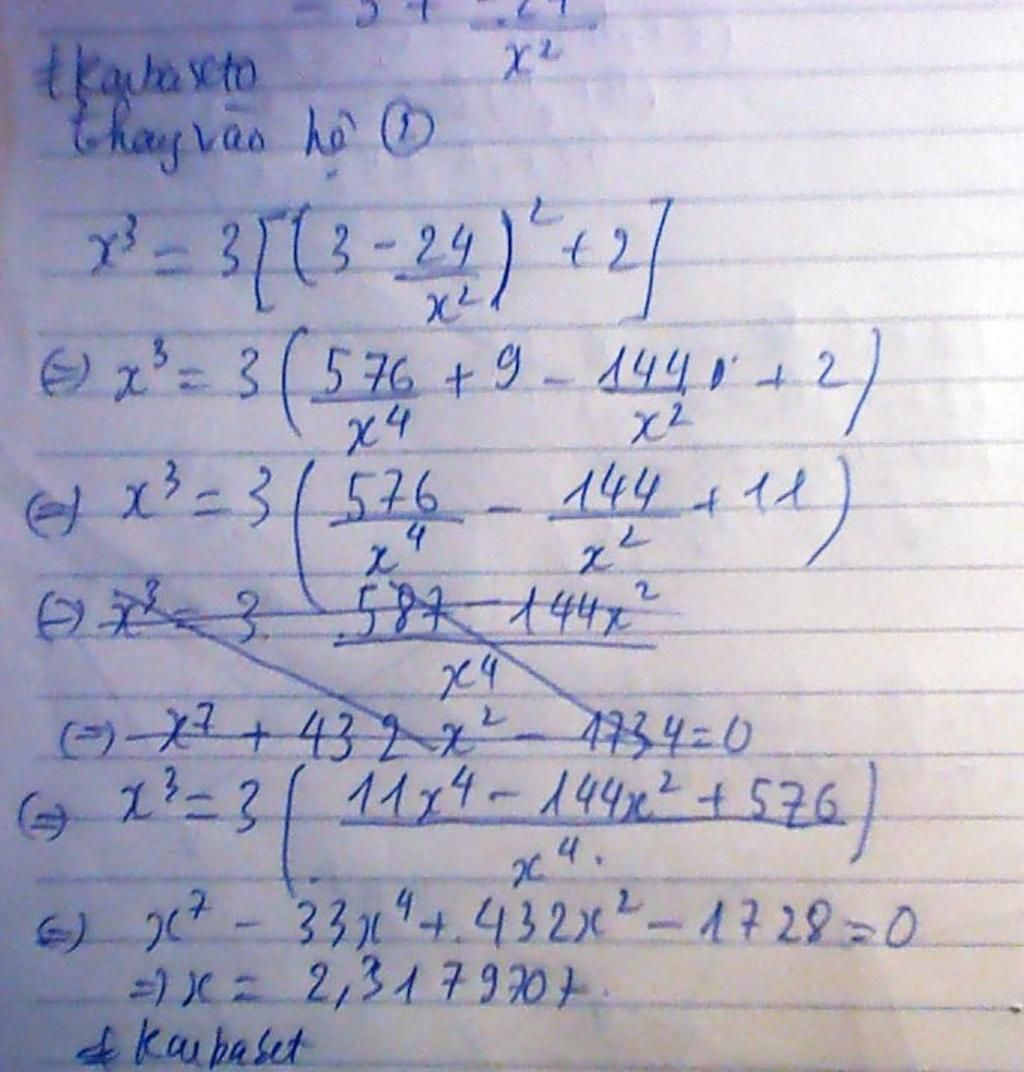 x²
thay vào hệ ①
x³ = 3[(3 - 24/x²)² + 2]
(=) x³ = 3(576/x⁴ + 9 - 144/x² + 2)
(=) x³ = 3(576/x⁴ - 144/x² + 11)
(=) x³ = 3 (587 - 144x²)/x⁴
(=) x⁷ + 432x² - 1734 = 0
(=) x³ = 3((11x⁴ - 144x² + 576)/x⁴)
(=) x⁷ - 33x⁴ + 432x² - 1728 = 0
=) x = 2,3179707